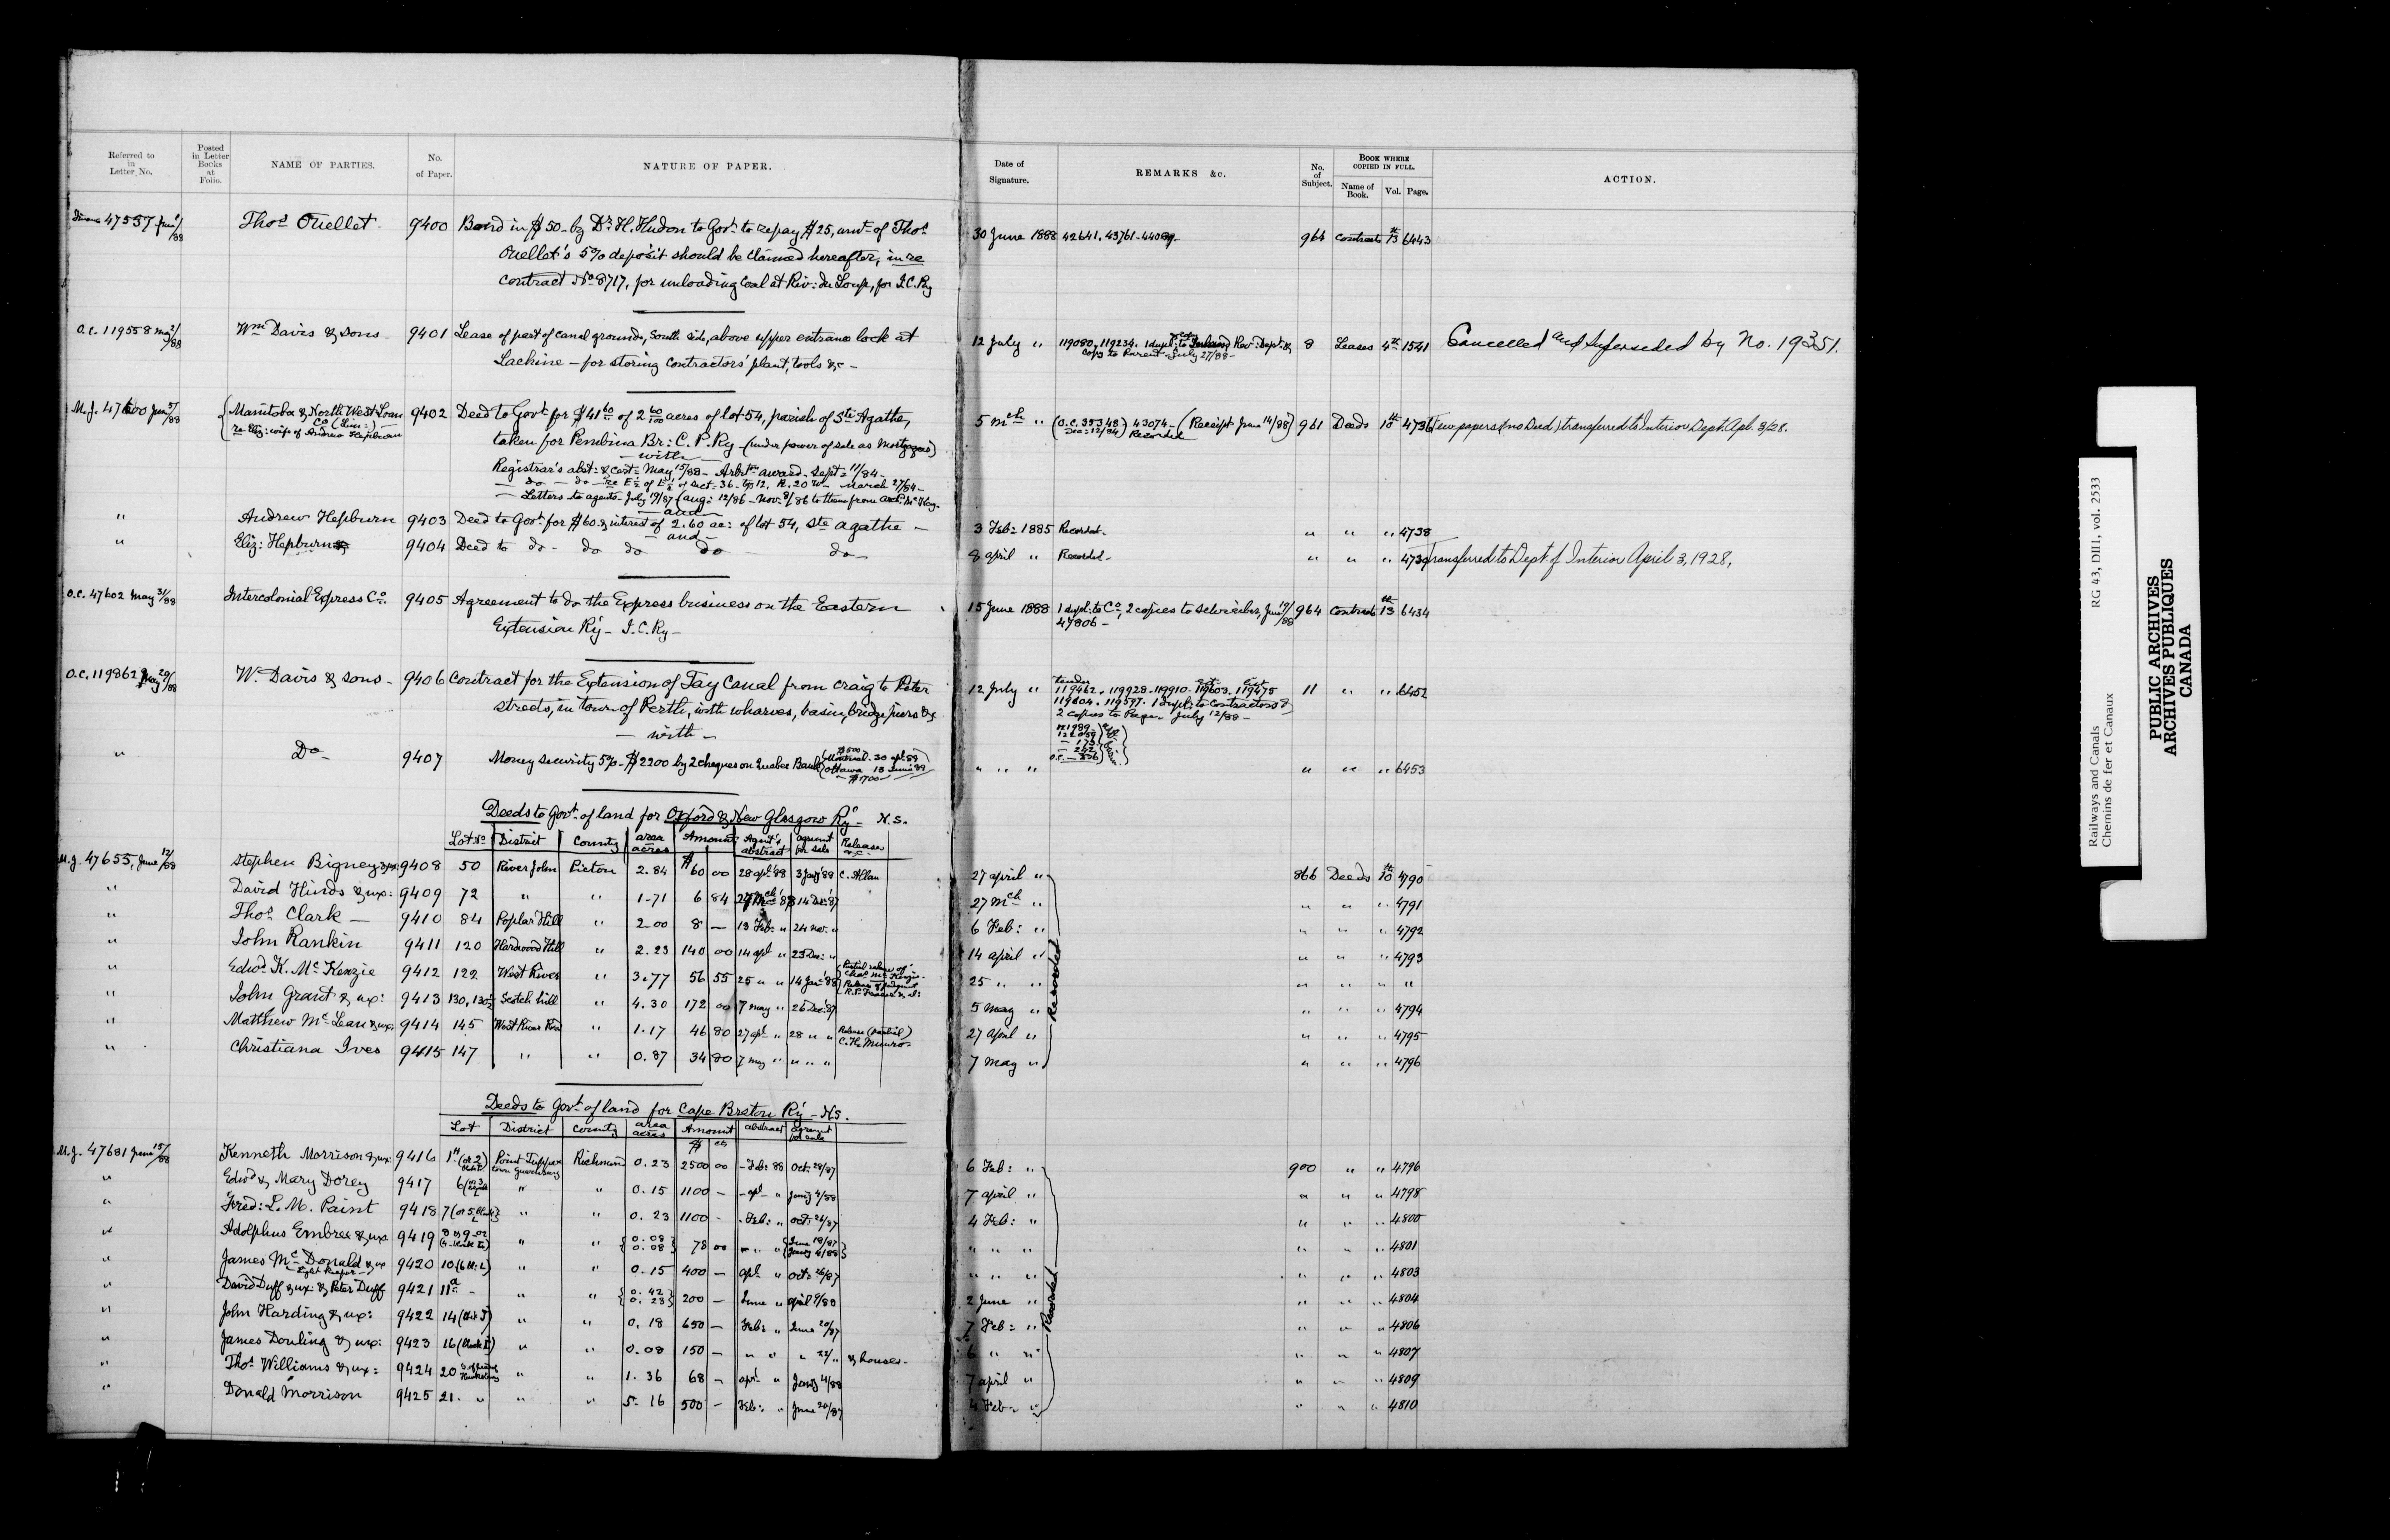 Referred to in Letter No. | Posted in Letter Books at Folio. | NAME OF PARTIES. | No. of Paper. | NATURE OF PAPER.
47557 June 1/88 Thos Ouellet. 9400 Bond in $50 by Dr H. Hudon to Govt to repay $25, amt of Thos
Ouellet's 5% deposit should be claimed hereafter, in re
contract No 8717, for unloading Coal at Riv: du Loup, for I.C. Ry
O.C. 119558 May 2/88 Wm Davis & Sons 9401 Lease of part of canal grounds, South side, above upper entrance lock at
Lachine – for storing contractors' plant, tools &c –
M.J. 47600 June 5/88 Manitoba & North West Loan Co (Lim:) 9402 Deed to Govt for $41 60 of 2 60/100 acres of lot 54, parish of Ste Agathe,
re Eliz: wife of Andrew Hepburn
taken for Pembina Br: C.P. Ry – (under power of sale as Mortgagees)
– with –
Registrar's abst: & cert: May 15/88 – Arbtn award – Sept 11/84 –
– do – do – re E½ of E½ of Sect: 36 – Tp 12, R. 20 W – March 27/84 –
– Letters to agents – July 19/87 (Aug: 12/86 – Nov. 8/86 to them from
– and –
" Andrew Hepburn 9403 Deed to Govt for $60 & interest of 2.60 ac: of lot 54, Ste Agathe –
– and –
" Eliz: Hepburn 9404 Deed to do – do do do – do –
O.C. 47602 May 31/88 Intercolonial Express Co. 9405 Agreement to do the Express business on the Eastern
Extension Ry – I.C. Ry –
O.C. 119862 May 29/88 W. Davis & Sons – 9406 Contract for the Extension of Tay Canal from Craig to Peter
streets, in town of Perth, with wharves, basin, bridge piers &c
– with –
" Do – 9407 Money security 5% – $2200 by 2 cheques on Quebec Bank ($500 Montreal 30 apl 88) (Ottawa 13 June 88 – $1700 –)
Deeds to Govt of land for Oxford & New Glasgow Ry – N.S.
Lot No | District | County | area acres | Amount | Agent's abstract | agrmnt for sale | Release &c.
M.J. 47655, June 12/88 Stephen Bigney & ux 9408 50 River John Pictou 2.84 $60 00 28 apl '88 3 Jany '88 C. Allan
" David Hinds & ux: 9409 72 " " 1.71 6 84 14 Dec: '87
" Thos Clark – 9410 84 Poplar Hill " 2.00 8 – 13 Feb: " 24 Nov. "
" John Rankin 9411 120 Hardwood Hill " 2.23 140 00 14 apl " 23 Dec: "
" Edwd K. McKenzie 9412 122 West River " 3.77 56 55 25 " " 14 Jan '88 Partial release of Chas McKenzie. Release of Judgment R.P. Fraser & al:
" John Grant & ux: 9413 130, 130½ Scotch hill " 4.30 172 00 7 May " 26 Dec: '87
" Matthew McLean & ux: 9414 145 West River " 1.17 46 80 27 apl " 28 " " Release (partial) C.H. Munro
" Christiana Ives 9415 147 " " 0.87 34 80 7 May " " " "
Deeds to Govt of land for Cape Breton Ry – N.S.
Lot | District | County | area acres | Amount $ cts | abstract | agrmnt for sale
M.J. 47681 June 15/88 Kenneth Morrison & ux: 9416 Point Tupper Richmond 0.23 2500 00 – Feb: 88 Oct: 28/87
" Edwd & Mary Dorey 9417 6 " " 0.15 1100 – – apl – " Jany 4/88
" Fred: L.M. Paint 9418 7 " " 0.23 1100 – – Feb: " Oct: 26/87
" Adolphus Embree & ux 9419 8 & 9 " " {0.08 0.08} 78 00 " " {June 18/87 Jany 4/88}
" James McDonald & ux Light Keeper 9420 10 " " 0.15 400 – apl " Oct: 26/87
" David Duff & ux: & Peter Duff 9421 11a – " " {0.42 0.23} 200 – June "
" John Harding & ux: 9422 14 " " 0.18 650 – Feb: " June 20/87
" James Dowling & ux: 9423 16 " " 0.08 150 – " " " 22/" & houses –
" Thos Williams & ux: 9424 20 " " 1.36 68 – apl " Jany 4/88
" Donald Morrison 9425 21 " " " 5.16 500 – Feb: " June 20/87
Date of Signature. | REMARKS &c. | No. of Subject. | BOOK WHERE COPIED IN FULL. Name of Book. Vol. Page. | ACTION.
30 June 1888 42641. 43761 – 44089 – 964 Contracts 13th 6443
12 July " 119080. 119234. 1 dupl: to Inland Rev: Dept: & 8 Leases 4th 1541 Cancelled and Superseded by No. 19351.
copy to Parent July 27/88 –
5 Mch " (O.C. 35348 Dec: 12/84) 43074 – (Receipt June 14/88) 961 Deeds 10th 4736 Few papers (no Deed) transferred to Interior Dept. Apl. 3/28.
Recorded
3 Feb: 1885 Recorded – " " " 4738
8 April " Recorded – " " " 4739 Transferred to Dept of Interior April 3, 1928,
15 June 1888 1 dupl: to Co, 2 copies to Schreiber, June 19/88 964 Contracts 13th 6434
47806 –
12 July " tender 119462. 119928 – 119910 – 119603. 119475 11 " " 6452
119604. 119597. 1 dupl: to Contractors &
2 copies to July 12/88 –
" " " " " " 6453
27 April " 866 Deeds 10th 4790
27 Mch " " " " 4791
6 Feb: " " " " 4792
14 April " " " " 4793
25 " " " " " "
5 May " " " " 4794
27 April " " " " 4795
7 May " " " " 4796
Recorded
6 Feb: " 900 " " 4796
7 April " " " " 4798
4 Feb: " " " " 4800
" " " " " " 4801
" " " " " " 4803
2 June " " " " 4804
7 Feb: " " " " 4806
6 " " " " " 4807
7 April " " " " 4809
4 Feb – " " " " 4810
Recorded
Railways and Canals RG 43, DIII, vol. 2533
Chemins de fer et Canaux
PUBLIC ARCHIVES
ARCHIVES PUBLIQUES
CANADA